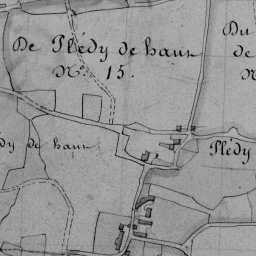 De Plédy de haut
N.º 15.
Du
de
N
dy de haut
Plédy